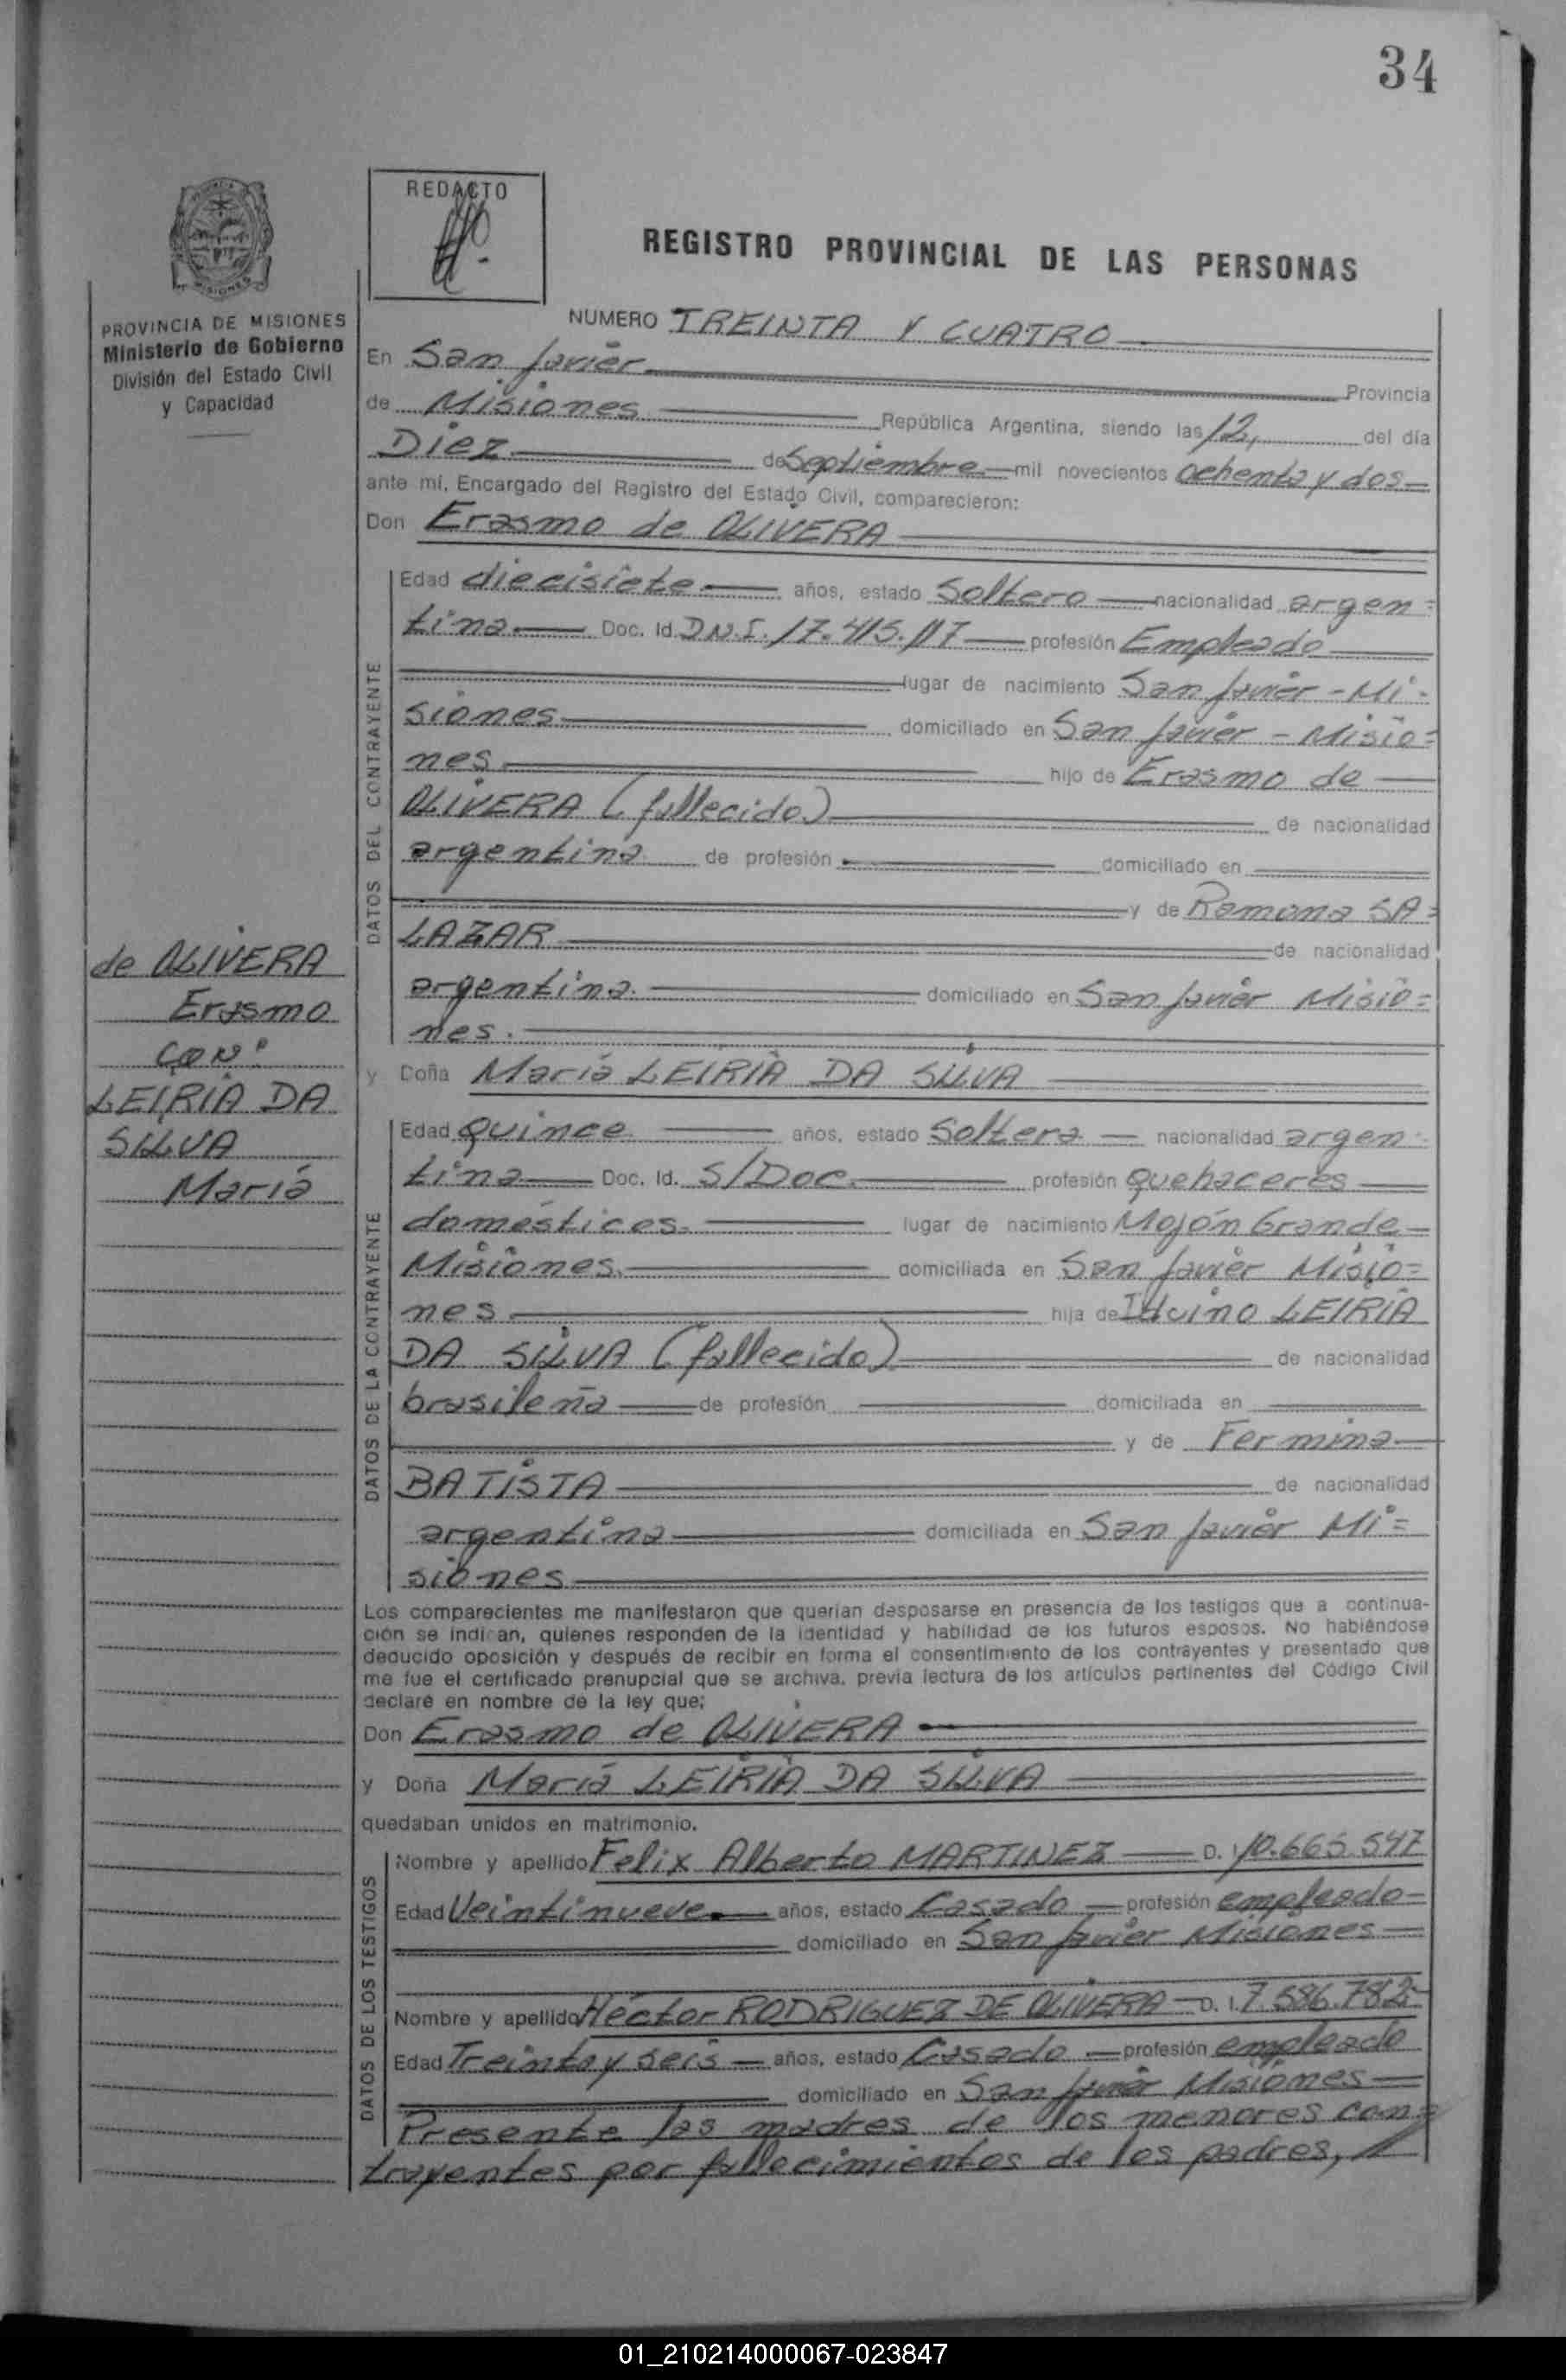 34
REDACTO
REGISTRO PROVINCIAL DE LAS PERSONAS
PROVINCIA DE MISIONES
Ministerio de Gobierno
División del Estado Civil
y Capacidad
NUMERO TREINTA Y CUATRO
En San Javier Provincia
de Misiones República Argentina, siendo las 12, del día
Diez de Septiembre mil novecientos ochenta y dos
ante mí, Encargado del Registro del Estado Civil, comparecieron:
Don Erasmo de OLIVERA
DATOS DEL CONTRAYENTE
Edad diecisiete años, estado Soltero nacionalidad argen=
tina Doc. Id. D.N.I. 17.415.117 profesión Empleado
lugar de nacimiento San Javier - Mi-
siones domiciliado en San Javier - Misio=
nes hijo de Erasmo de
OLIVERA (fallecido) de nacionalidad
argentina de profesión domiciliado en
y de Ramona SA=
LAZAR de nacionalidad
argentina. domiciliado en San Javier Misio=
nes.
de OLIVERA
Erasmo
CON:
LEIRIA DA
SILVA
María
y Doña María LEIRIA DA SILVA
DATOS DE LA CONTRAYENTE
Edad Quince años, estado Soltera nacionalidad argen-
tina Doc. Id. S/Doc. profesión Quehaceres
domésticos. lugar de nacimiento Mojón Grande
Misiones. domiciliada en San Javier Misio=
nes hija de LEIRIA
DA SILVA (fallecido) de nacionalidad
brasileña de profesión domiciliada en
y de Fermina
BATISTA de nacionalidad
argentina domiciliada en San Javier Mi=
siones
Los comparecientes me manifestaron que querían desposarse en presencia de los testigos que a continua-
ción se indican, quienes responden de la identidad y habilidad de los futuros esposos. No habiéndose
deducido oposición y después de recibir en forma el consentimiento de los contrayentes y presentado que
me fue el certificado prenupcial que se archiva, previa lectura de los artículos pertinentes del Código Civil
declaré en nombre de la ley que:
Don Erasmo de OLIVERA
y Doña María LEIRIA DA SILVA
quedaban unidos en matrimonio.
DATOS DE LOS TESTIGOS
Nombre y apellido Felix Alberto MARTINEZ D. I. 10.665.547
Edad Veintinueve años, estado Casado profesión empleado
domiciliado en San Javier Misiones
Nombre y apellido Héctor RODRIGUEZ DE OLIVERA D. I. 7.586.782
Edad Treinta y seis años, estado Casado profesión empleado
domiciliado en San Javier Misiones
Presente las madres de los menores con=
trayentes por fallecimientos de los padres,
01_210214000067-023847